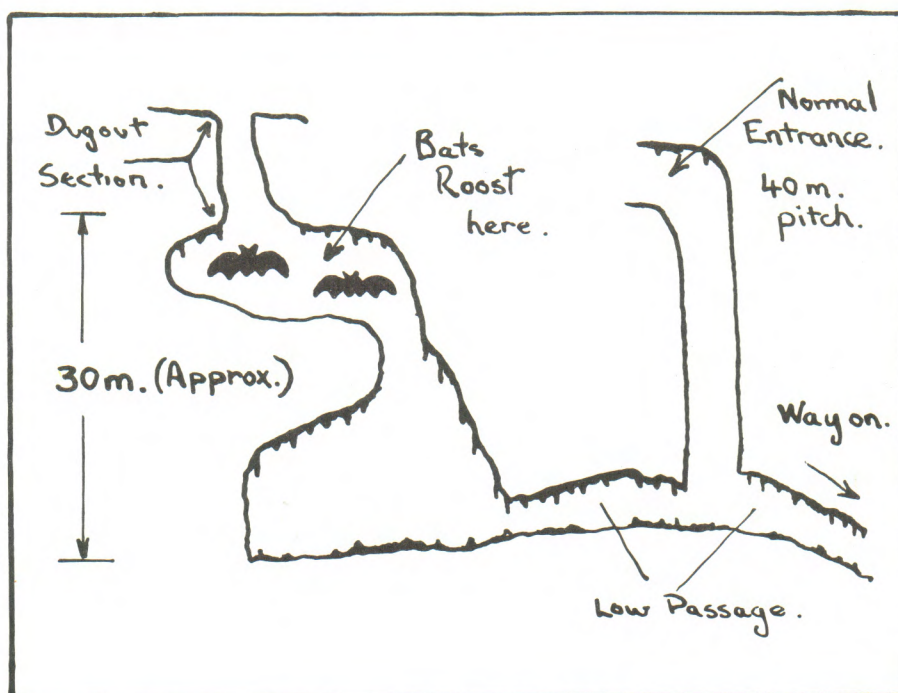 Dugout
Section.
Bats
Roost
here.
Normal
Entrance.
40m.
pitch.
30m. (Approx.)
Way on.
Low Passage.